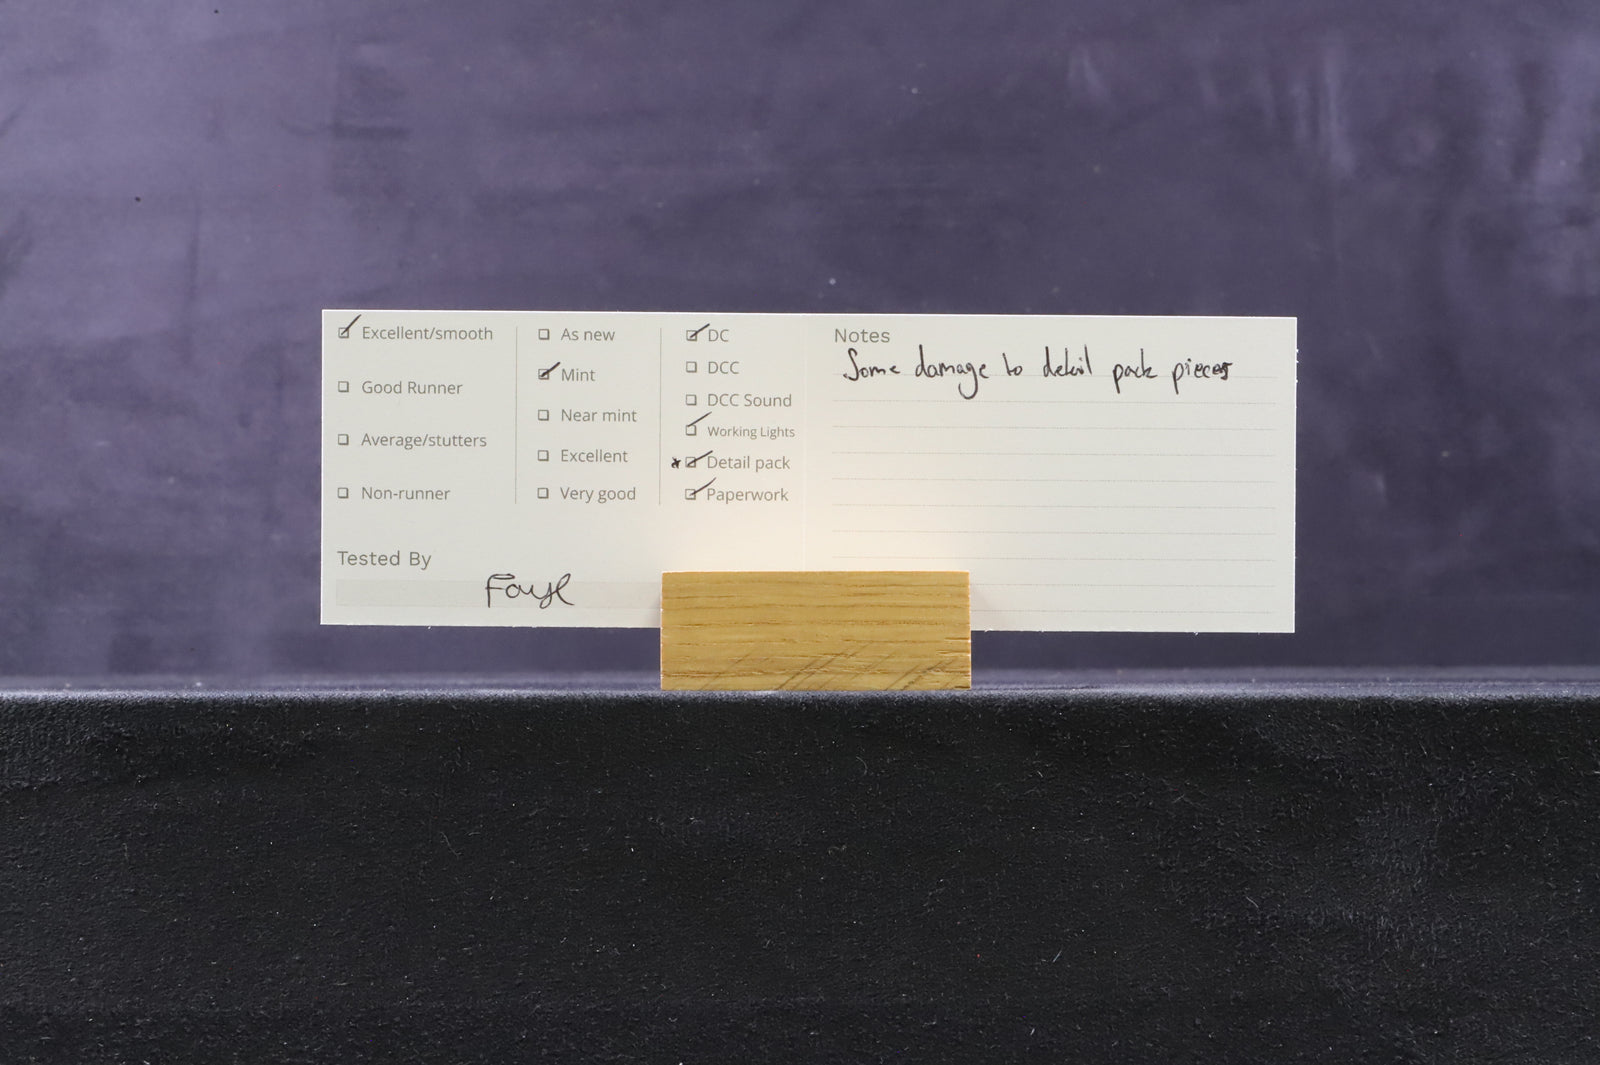 Excellent/smooth
Good Runner
Average/stutters
Non-runner
As new
Mint
Near mint
Excellent
Very good
DC
DCC
DCC Sound
Working Lights
* Detail pack
Paperwork
Notes
Some damage to detail pack pieces
Tested By